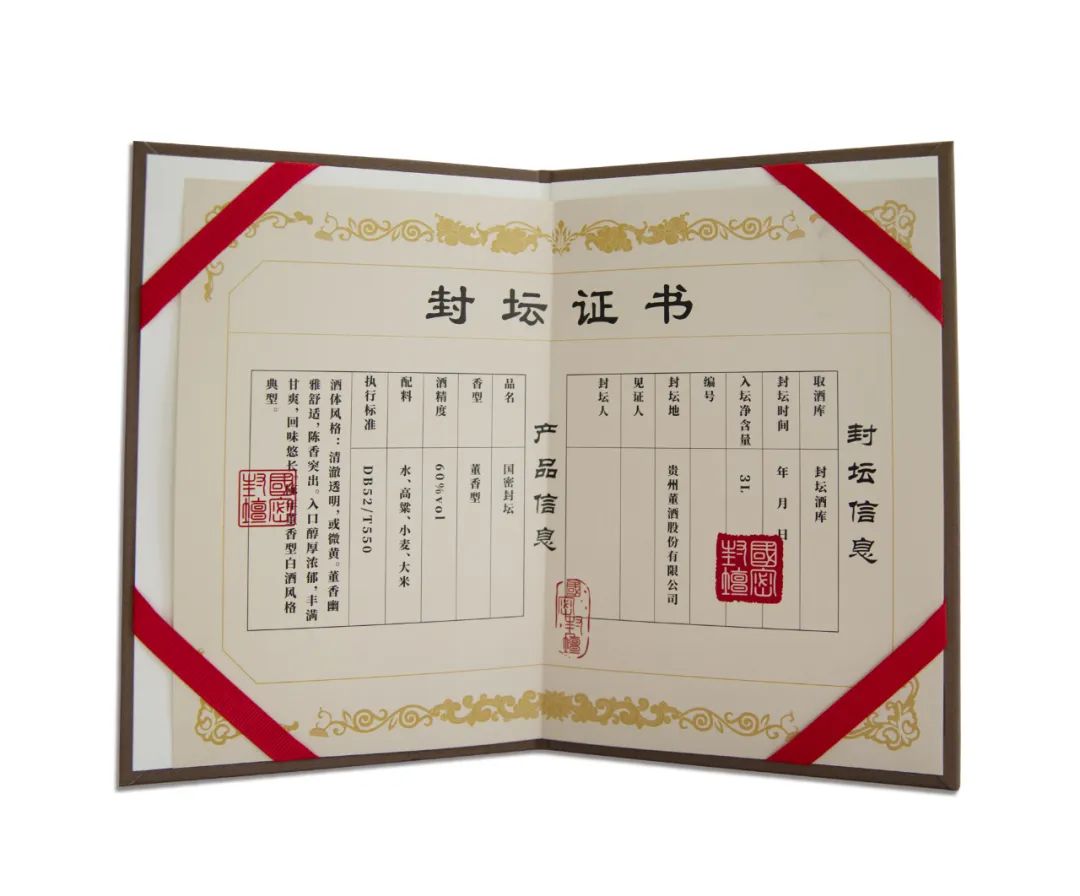 封坛证书
封坛信息
取酒库 封坛酒库
封坛时间 年 月 日
入坛净含量 3L
编号
封坛地 贵州董酒股份有限公司
见证人
封坛人
产品信息
品名 国密封坛
香型 董香型
酒精度 60%vol
配料 水、高粱、小麦、大米
执行标准 DB52/T550
酒体风格：清澈透明，或微黄。董香幽
雅舒适，陈香突出。入口醇厚浓郁，丰满
甘爽，回味悠长 香型白酒风格
典型。
國密封壇
國密封壇
國密封壇